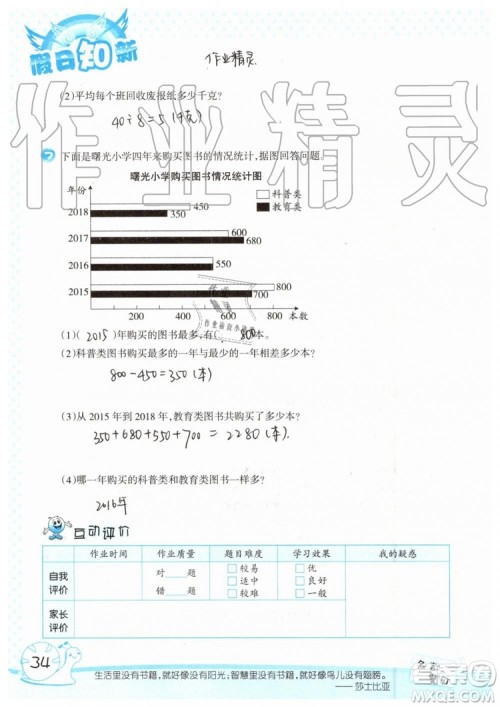 假日知新
作业精灵
(2)平均每个班回收废报纸多少千克?
40÷8=5(千克)
下面是曙光小学四年来购买图书的情况统计,据图回答问题。
曙光小学购买图书情况统计图
年份
科普类
教育类
2018 450
350
2017 600
680
2016 550
2015 800
700
0 200 400 600 800 本数
(1)( 2015 )年购买的图书最多,有( 800 )本。
(2)科普类图书购买最多的一年与最少的一年相差多少本?
800-450=350(本)
(3)从 2015 年到 2018 年,教育类图书共购买了多少本?
350+680+550+700=2280(本)
(4)哪一年购买的科普类和教育类图书一样多?
2016年
互动评价
作业时间 作业质量 题目难度 学习效果 我的疑惑
自我评价 对___题 错___题 □较易 □适中 □较难 □优 □良好 □较好
家长评价
34
生活里没有书籍,就好像没有阳光;智慧里没有书籍,就好像鸟儿没有翅膀。
——莎士比亚